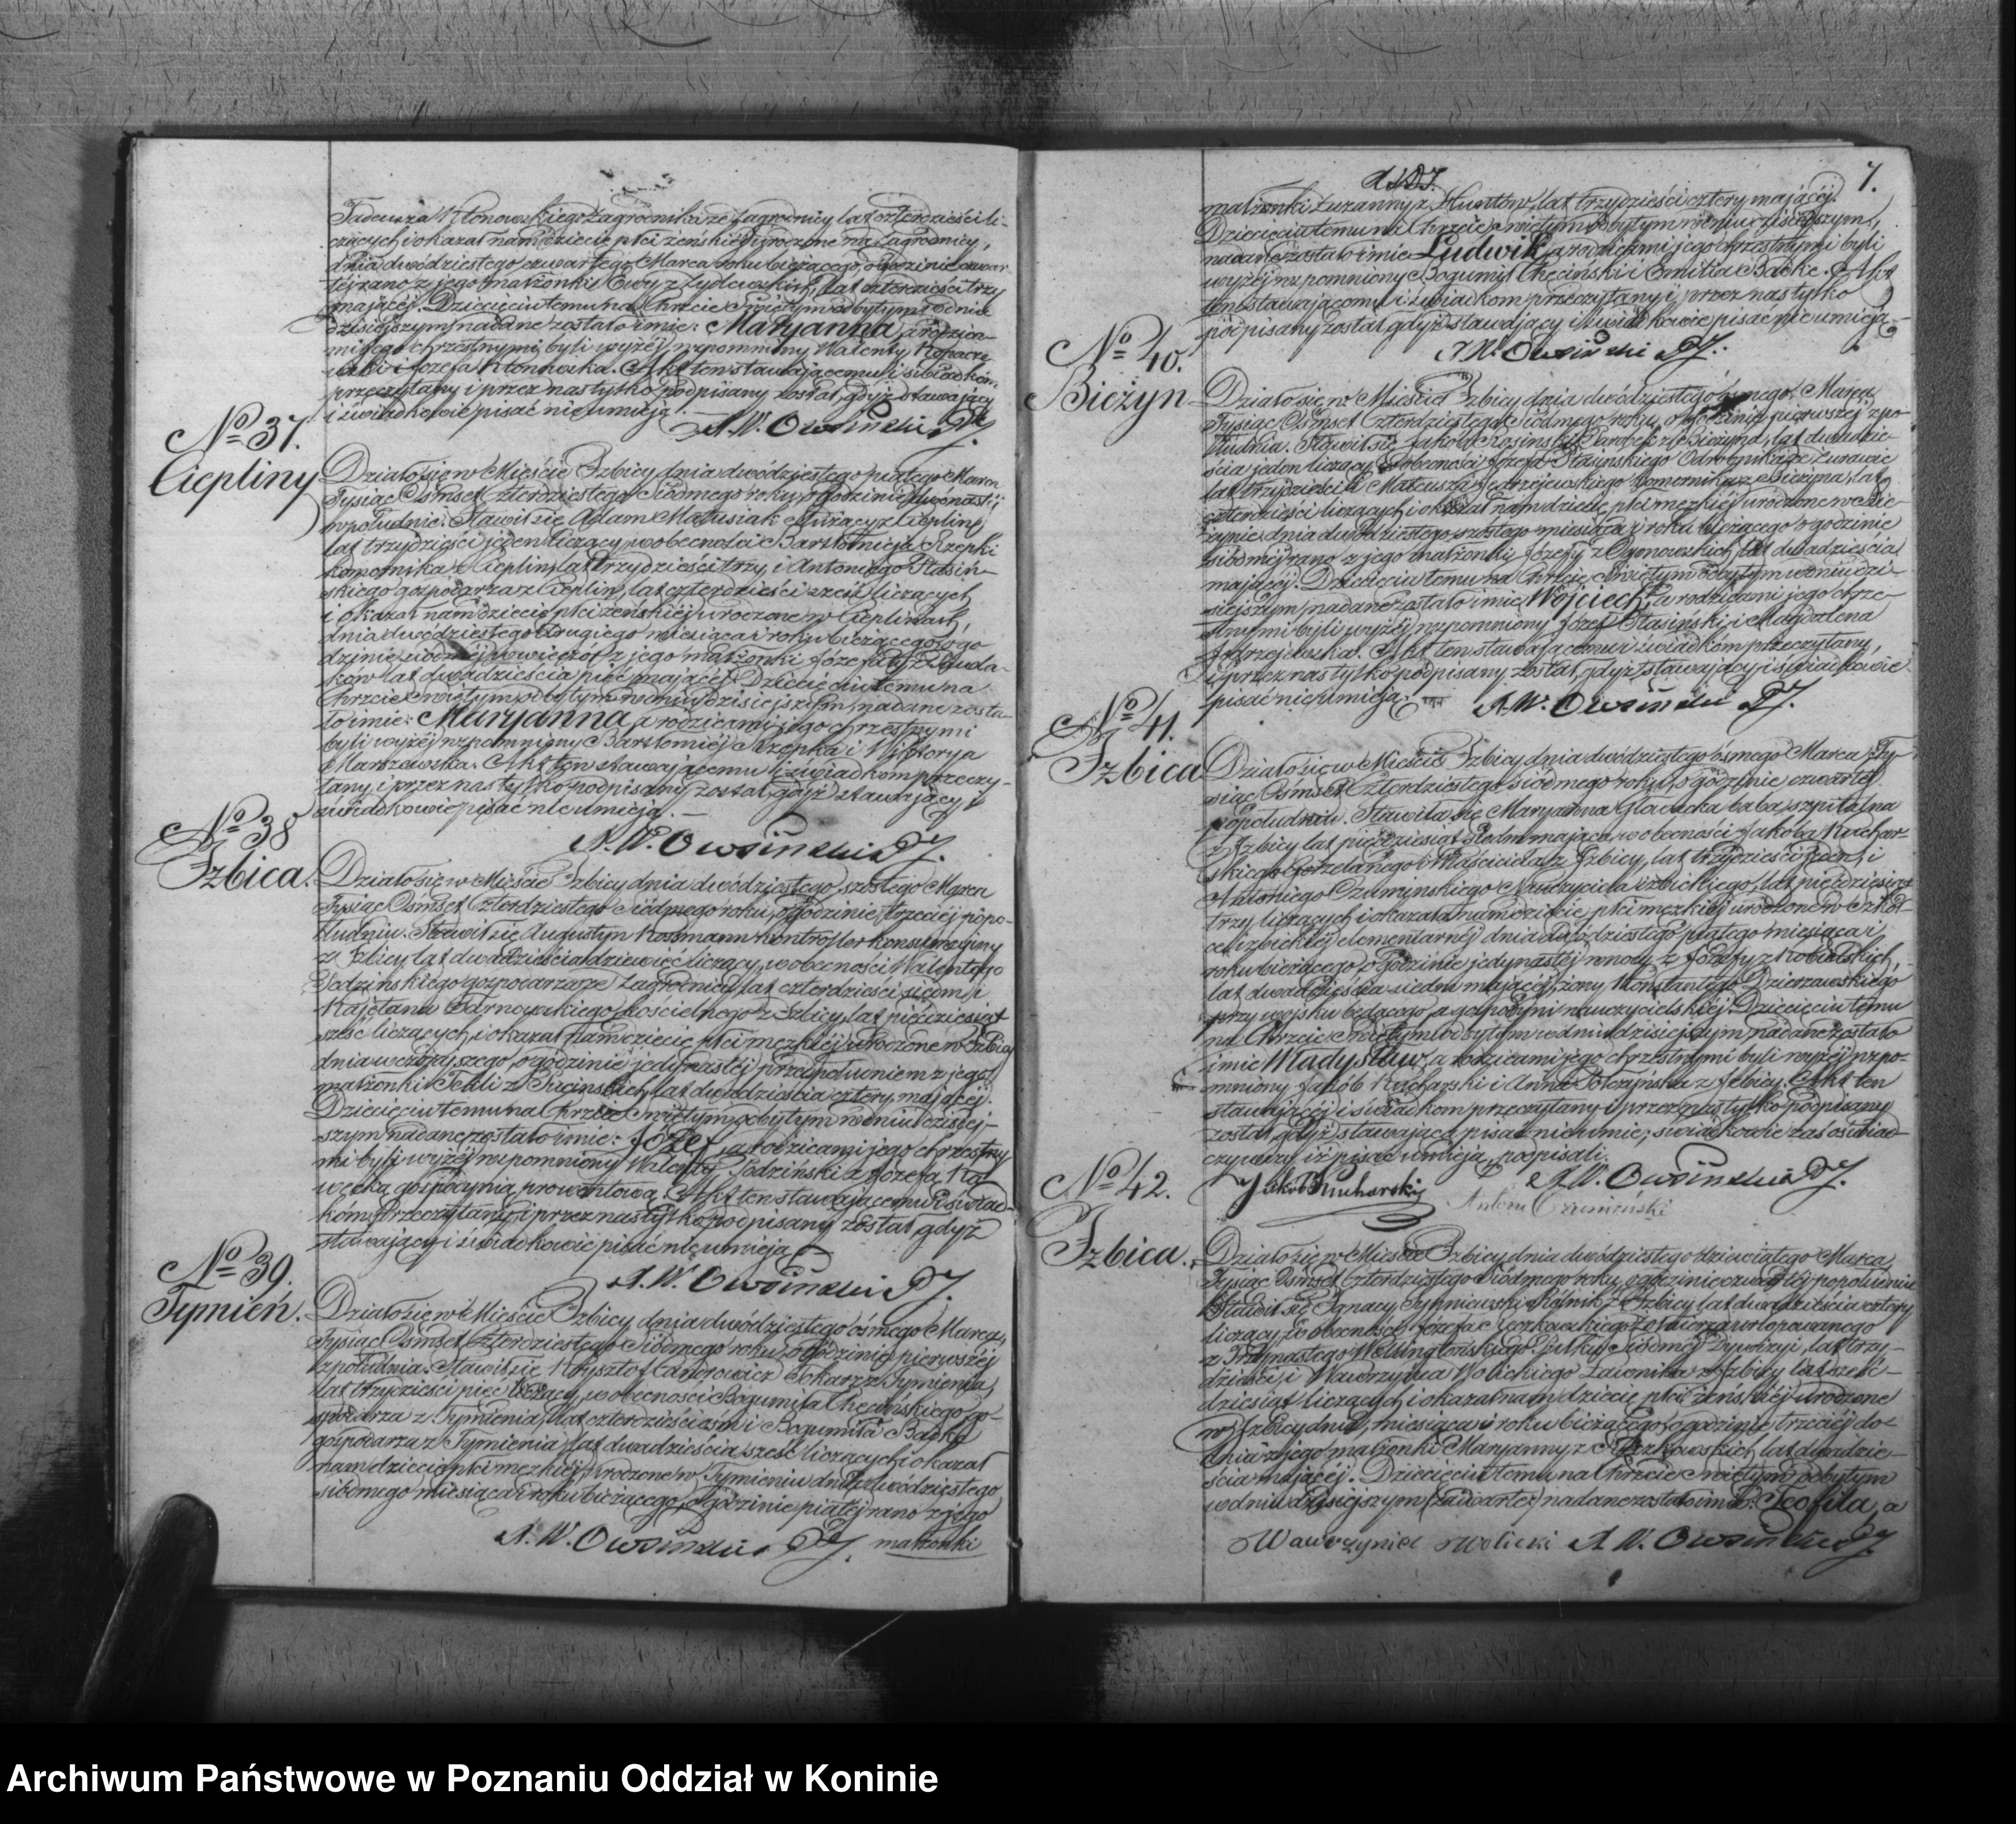 Tadeusza Kłonowskiego Zagrodnika ze Zagrodnicy lat czterdzieści li-
czących i okazał nam dziecię płci żeńskiej urodzone na Zagrodnicy,
dnia dwódziestego czwartego Marca roku bieżącego, o godzinie czwar-
téj rano, z jego małżonki Ewy z lat czterdzieści trzy
mającéj. Dziecięciu temu na Chrzcie Swiętym odbytym w dniu
dzisiejszym nadane zostało imie: Maryanna, a rodzica-
mi jego chrzestnymi byli wyżéj wzpomniony Walenty
i Józefa Kłonowska. Akt ten stawającemu i świadkóm
przeczytany i przez nas tylko podpisany został, gdyż stawający
i świadkowie pisać nie umieją.
A. W. Owsiński
No 37.
Ciepliny
Działo się w Mieście Izbicy dnia dwódziestego piątego Marca
Tysiąc Osmset Czterdziestego Siódmego roku, o godzinie dwunastéj
w południe. Stawił się Adam Matusiak Służący z Cieplin,
lat trzydzieści jeden liczący, w obecności Bartłomieja Rzepki
komornika z Cieplin, lat trzydzieści trzy, i Antoniego Stasiń-
skiego gospodarza z Cieplin, lat czterdzieści sześć liczących
i okazał nam dziecię płci żeńskiéj urodzone w Cieplinach,
dnia dwódziestego drugiego miesiąca i roku bieżącego, o go-
dzinie siódméj wieczór z jego małżonki Józefaty z
ków lat dwadzieścia pięć mającéj. Dziecięciu temu na
Chrzcie Swiętym odbytym w dniu dzisiejszym, nadane zosta-
ło imie: Maryanna, a rodzicami jego chrzestnymi
byli wyżéj wzpomniony Bartłomiéj Rzepka i Wiktorya
Marszewska. Akt ten stawającemu i świadkom przeczy-
tany i przez nas tylko podpisany został, gdyż stawający i
świadkowie pisać nie umieją.
A. W. Owsiński
No 38
Izbica.
Działo się w Mieście Izbicy dnia dwódziestego szóstego Marca
Tysiąc Osmset Czterdziestego Siódmego roku, o godzinie trzeciéj popo-
łudniu. Stawił się Augustyn Rossmann kontroller konsumcyjny
z Izbicy lat dwadzieścia dziewięć liczący, w obecności Walentego
Sodzińskiego gospodarza ze Zagrodnicy lat czterdzieści siedm, i
Kajetana Tarnowskiego kościelnego z Izbicy, lat pięćdziesiąt
sześć liczących, i okazał nam dziecię płci męzkiéj urodzone w Izbicy
dnia wczorajszego, o godzinie jedynastéj przed południem z jego
małżonki Tekli z lat dwadzieścia cztery mającéj.
Dziecięciu temu na Chrzcie Swiętym odbytym w dniu dzisiéj-
szym nadane zostało imie: Józef, a rodzicami jego chrzestny-
mi byli wyżéj wzpomniony Walenty Sodziński z Józefą
gospodynią prowentową. Akt ten stawającemu i świad-
kom przeczytany i przez nas tylko podpisany został, gdyż
stawający i świadkowie pisać nie umieją.
A. W. Owsiński
No 39.
Tymień.
Działo się w Mieście Izbicy dnia dwódziestego ósmego Marca,
Tysiąc Osmset Czterdziestego Siódmego roku, o godzinie pierwszéj
z południa. Stawił się Krysztof Okarz z Tymienia,
lat trzydzieści pięć liczący, w obecności Bogumiła Chęcińskiego go-
spodarza z Tymienia, lat czterdzieści i Bogumiła Backe
gospodarza z Tymienia lat dwadzieścia sześć liczących i okazał
nam dziecię płci męzkiéj, urodzone w Tymieniu dnia dwódziestego
siódmego miesiąca i roku bieżącego, o godzinie piątéj rano z jego
A. W. Owsiński małżonki
7.
małżonki Zuzanny z Huntów, lat trzydzieści cztery mającéj.
Dziecięciu temu na Chrzcie Swiętym odbytym w dniu dzisiejszym,
nadane zostało imie Ludwik, a rodzicami jego chrzestnymi byli
wyżéj wzpomniony Bogumił Chęciński i Emilia Backe. Akt
ten stawającemu i świadkom przeczytany i przez nas tylko
podpisany został, gdyż stawający i świadkowie pisać nie umieją.
A. W. Owsiński
No 40.
Bieżyn
Działo się w Mieście Izbicy dnia dwódziestego ósmego Marca
Tysiąc Osmset Czterdziestego Siódmego roku, o godzinie pierwszéj z po-
łudnia. Stawił się Jakób Rosiński Parobek z Bieżyna, lat dwadzie-
ścia jeden liczący, w obecności Józefa Stasińskiego
lat trzydzieści i Mateusza Jędrzejewskiego Komornika z Bieżyna, lat
czterdzieści liczących i okazał nam dziecię płci męzkiéj urodzone w Bie-
żynie dnia dwódziestego szóstego miesiąca i roku bieżącego o godzinie
siódméj rano z jego małżonki Józefy z lat dwadzieścia
mającéj. Dziecięciu temu na Chrzcie Swiętym odbytym w dniu dzi-
siejszym, nadane zostało imie Wojciech, a rodzicami jego chrze-
stnymi byli wyżéj wzpomniony Józef Stasiński i Magdalena
Jędrzejewska. Akt ten stawającemu i świadkóm przeczytany,
i przez nas tylko podpisany został, gdyż stawający i świadkowie
pisać nie umieją.
A. W. Owsiński
No 41.
Izbica
Działo się w Mieście Izbicy dnia dwódziestego ósmego Marca Ty-
siąc Osmset Czterdziestego Siódmego roku, o godzinie czwartéj
popołudniu. Stawiła się Maryanna Głowacka baba szpitalna
z Izbicy lat pięćdziesiąt siedm mająca, w obecności Jakóba Kuchar-
skiego Właściciela z Izbicy, lat trzydzieści jeden, i
Antoniego Czamińskiego Nauczyciela izbickiego, lat pięćdziesiąt
trzy liczących i okazała nam dziecię płci męzkiéj urodzone w szkół-
ce izbickiéj elementarnéj dnia dwódziestego piątego miesiąca i
roku bieżącego o godzinie jedynastéj w nocy z Józefy z Kobielskich,
lat dwadzieścia siedm mającéj, żony Konstantego Dzierzawskiego
przy wojsku będącego, a gospodyni nauczycielskiéj. Dziecięciu temu
na Chrzcie Swiętym odbytym w dniu dzisiejszym, nadane zostało
imie Władysław, a rodzicami jego chrzestnymi byli wyżéj wzpo-
mniony Jakób Kucharski i Anna z Izbicy. Akt ten
stawającéj i świadkom przeczytany i przez nas tylko podpisany
został, gdyż stawająca pisać nie umie; świadkowie zaś oświad-
czywszy iż pisać umieją, podpisali.
Jakób Kucharski A. W. Owsiński
Antoni Czamiński
No 42.
Izbica.
Działo się w Mieście Izbicy dnia dwódziestego dziewiątego Marca
Tysiąc Osmset Czterdziestego Siódmego roku, o godzinie czwartéj popołudniu
Stawił się Ignacy Rólnik z Izbicy lat dwadzieścia cztery
liczący, w obecności Józefa Żołnierza urlopowanego
z Trzynastego Wellingtońskiego Pułku Siódméj Dywizyi, lat trzy-
dzieści, i Wawrzyńca Wolickiego Ławnika z Izbicy lat sześć-
dziesiąt liczących i okazał nam dziecię płci żeńskiéj urodzone
w Izbicy dnia, miesiąca i roku bieżącego, o godzinie trzeciéj do
dnia z jego małżonki Maryanny z lat dwadzie-
ścia mającéj. Dziecięciu temu na Chrzcie Swiętym odbytym
w dniu dzisiejszym nadane zostało imie: Teofila, a
Wawrzyniec Wolicki A. W. Owsiński
Archiwum Państwowe w Poznaniu Oddział w Koninie